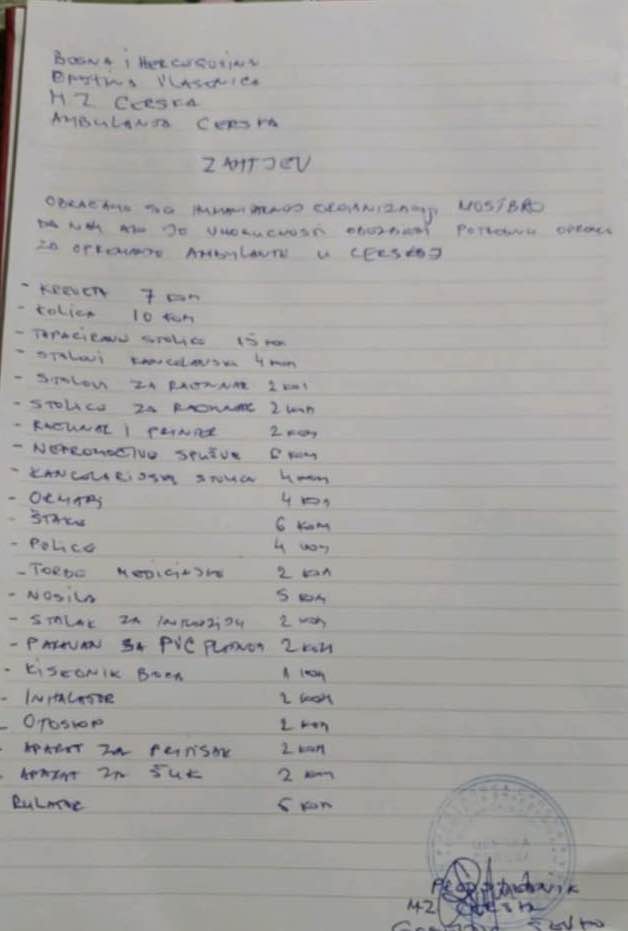 BOSNA I HERCEGOVINA
OPŠTINA VLASENICA
MZ CERSKA
AMBULANTA CERSKA
ZAHTJEV
OBRAĆAMO SE HUMANITARNOJ ORGANIZACIJI
DA NAM AKO JE U MOGUĆNOSTI POTREBNU OPREMU
ZA OPREMANJE AMBULANTE U CERSKOJ
- KREVETA 7 KOM
- KOLICA 10 KOM
- TAPACIRANE STOLICE 15 KOM
- STOLOVI KANCELARISKI 4 KOM
- STOLOVI ZA RAČUNAR 2 KOM
- STOLICE ZA RAČUNAR 2 KOM
- RAČUNAR I PRINTER 2 KOM
- NEPROMOČIVE KOM
- KANCELARIJSKE STOLICE 4 KOM
- ORMARI 4 KOM
- ŠTAKE 6 KOM
- POLICE 4 KOM
- TORBE MEDICINSKE 2 KOM
- NOSILA 5 KOM
- STALAK ZA INFUZIJU 2 KOM
- PARAVAN SA PVC PLATNOM 2 KOM
- KISEONIK BOCA 1 KOM
- INHALATOR 2 KOM
- OTOSKOP 2 KOM
- APARAT ZA PRITISAK 2 KOM
- APARAT ZA ŠUK 2 KOM
RULATOR 5 KOM
PREDSJEDNIK
MZ CERSKA